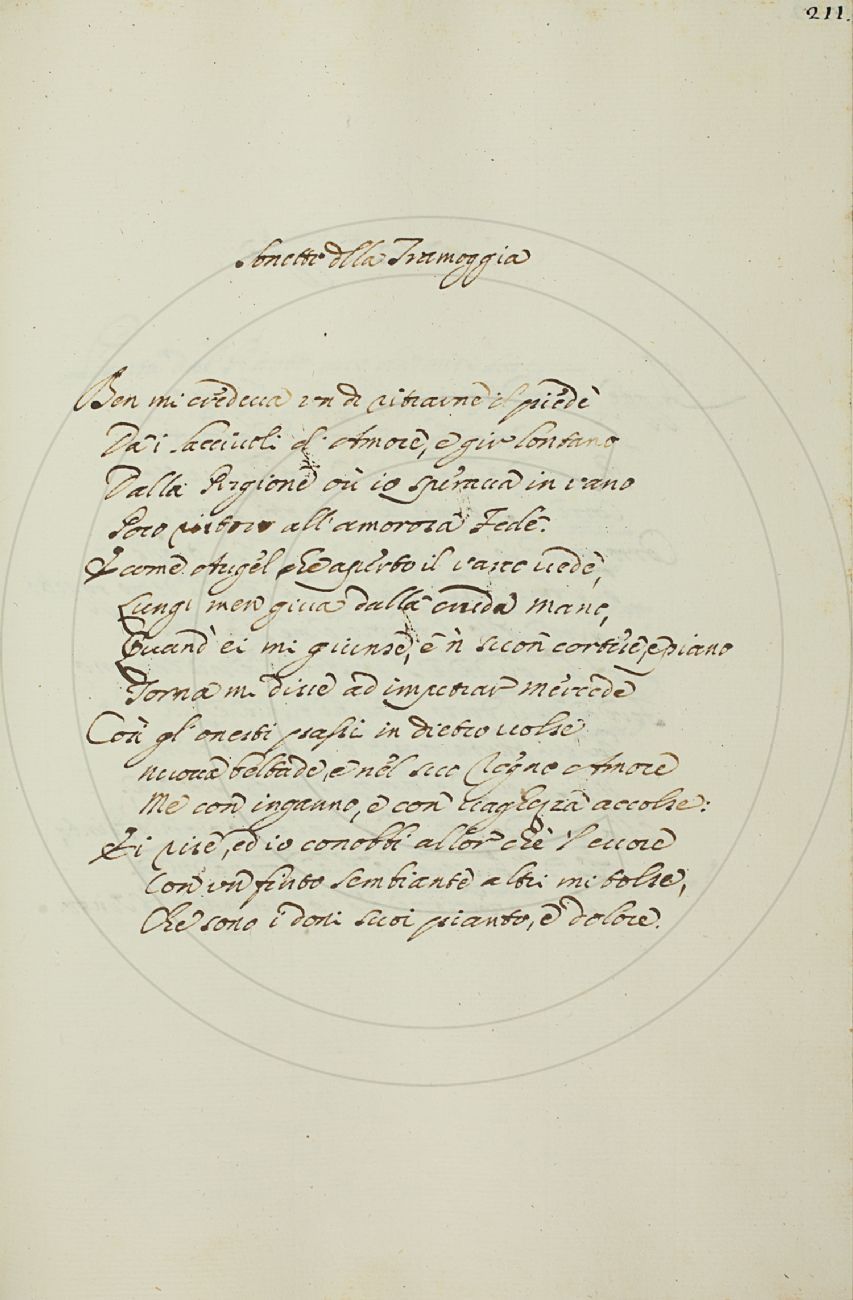 211.
Sonetto della Tramoggia
Ben mi credeua vn dì ritrarne il piede
Da i lacciuoli d'Amore, e gir lontano
Dalla Prigione où io speraua in vano
Poco all'amorosa Fede.
E come Augel che aperto il varco uede,
Lungi men giua dalla cruda mano,
Quand'ei mi giunse, e 'n suon cortese, e piano
Torna mi disse ad impetrar mercede
Così gl'onesti passi in dietro uolse
nuoua beltade, e nel suo Regno Amore
Me con inganno, e con uaghezza accolse:
Ei rise, ed io conobbi allor che 'l cuore
Con vn finto sembiante altri mi tolse,
Che sono i doni suoi pianto, e dolore.